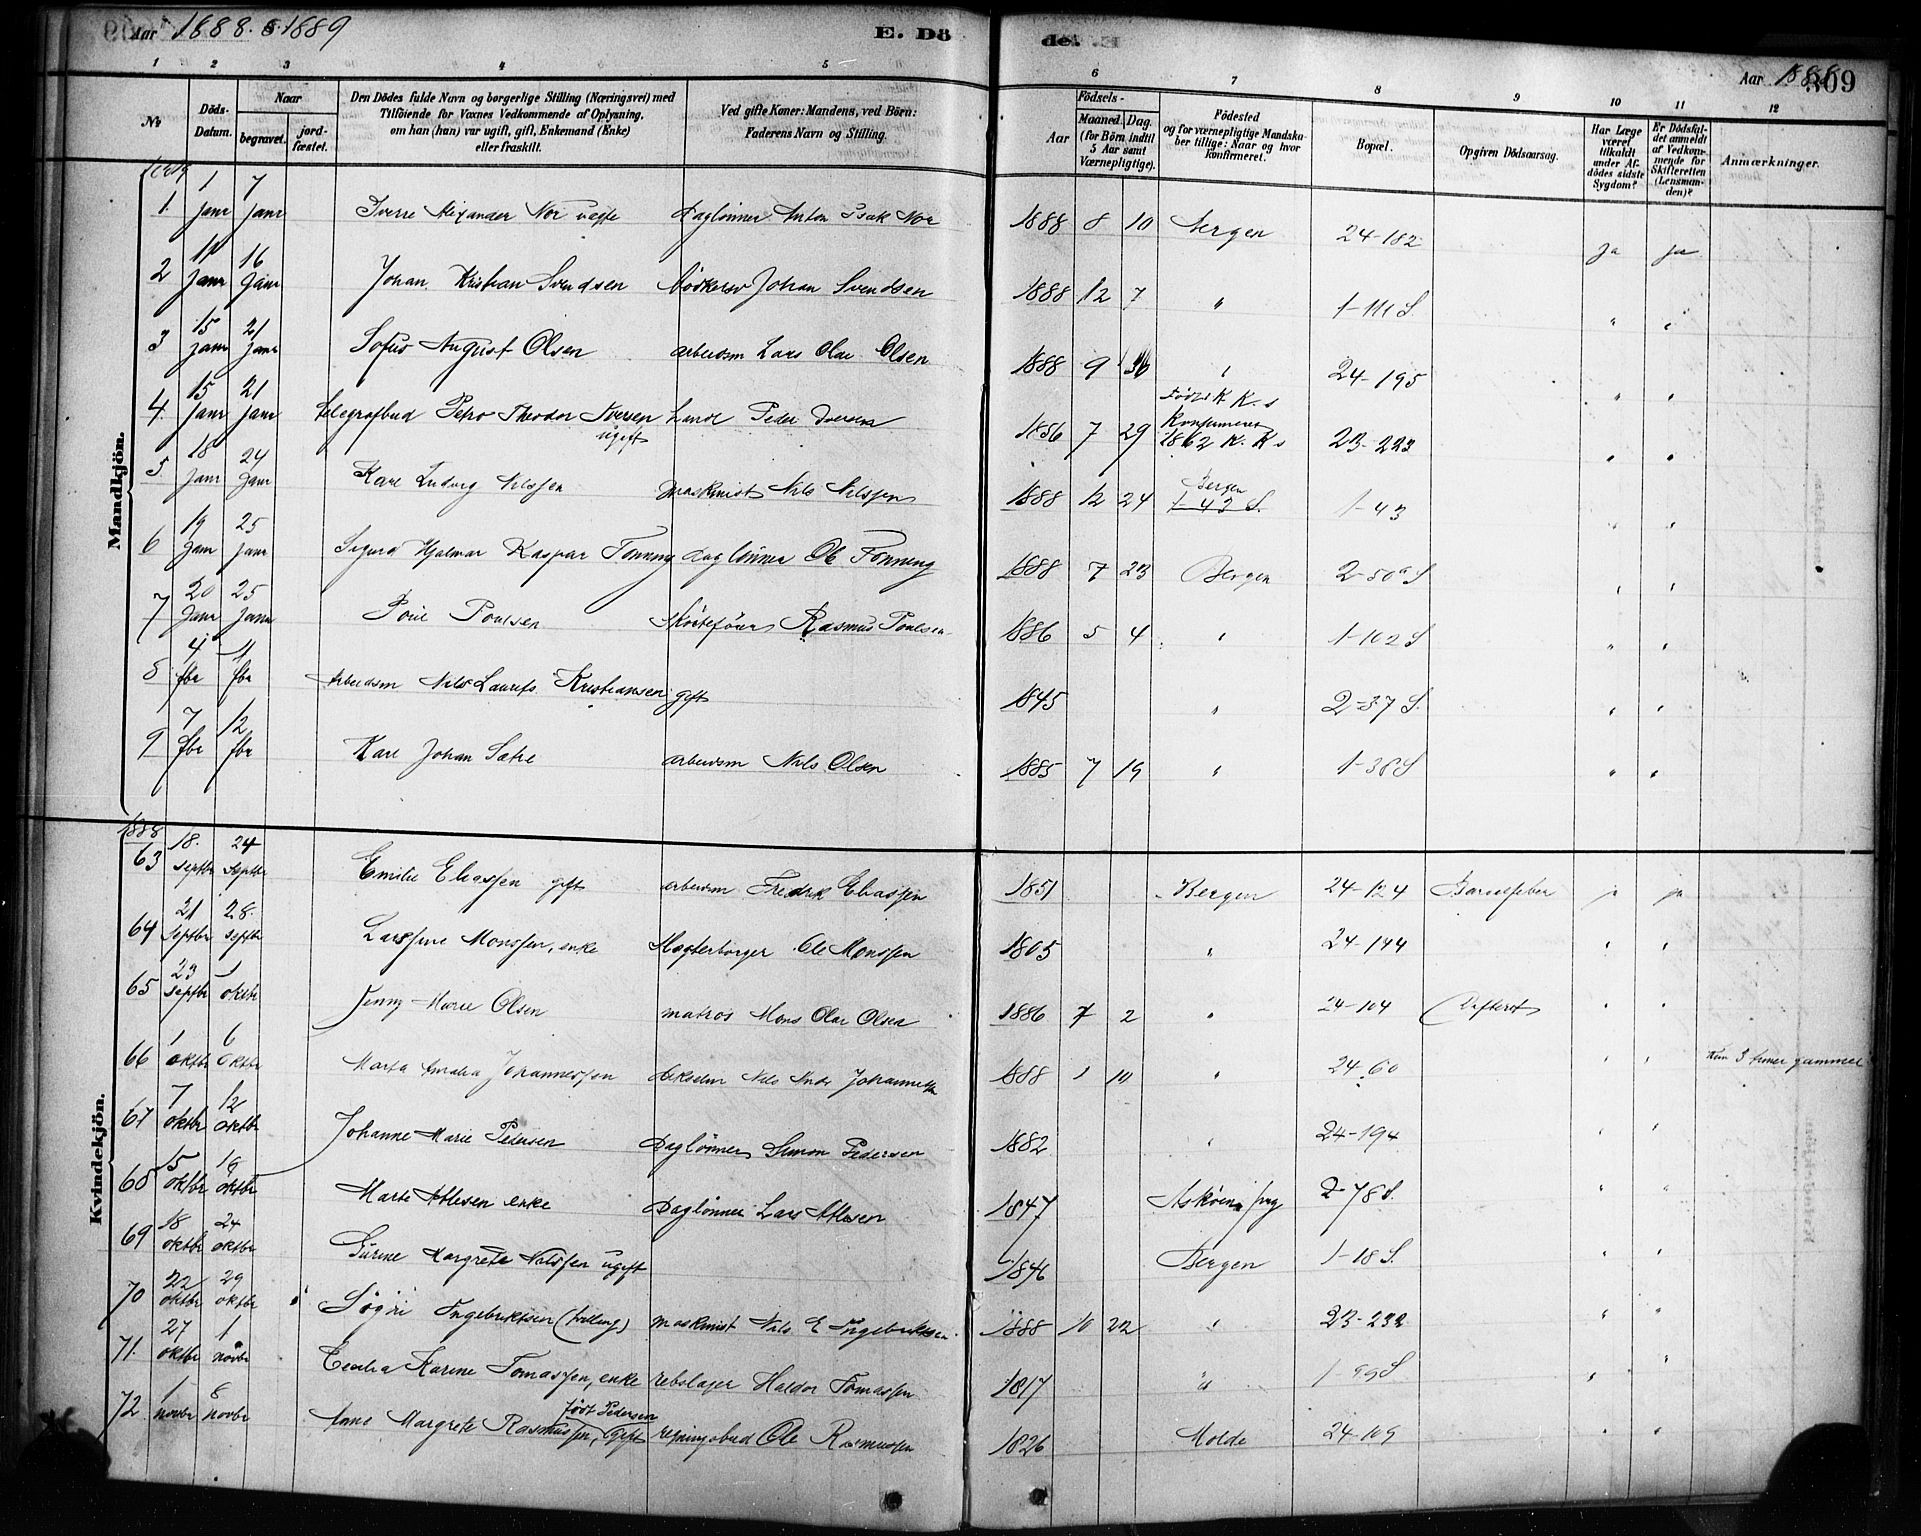 Aar 1888. & 1889
E. Dö
de.
Aar 1888
309
1 2 3 4 5 6 7 8 9 10 11 12
№
Döds-Datum.
Naar
begravet.
jord-fæstet.
Den Dödes fulde Navn og borgerlige Stilling (Næringsvei) med
Tilföiende for Voxnes Vedkommende af Oplysning,
om han (hun) var ugift, gift, Enkemand (Enke)
eller fraskilt.
Ved gifte Koner: Mandens, ved Börn:
Faderens Navn og Stilling.
Födsels-
Aar
Maaned. Dag.
(for Börn indtil
5 Aar samt
Værnepligtige).
Födested
og for værnepligtige Mandska-
ber tillige: Naar og hvor
konfirmeret.
Bopæl.
Opgiven Dödsaarsag.
Har Læge
været
tilkaldt
under Af-
dödes sidste
Sygdom?
Er Dödsfal-
det anmeldt
af Vedkom-
mende for
Skifteretten
(Lensman-
den)?
Anmærkninger.
Mandkjön.
1889
1 1 Janr 7 Janr Alexander Nor Daglönner Anton Isak Nor 1888 8 10 Bergen 24-182 ja ja
2 11 Janr 16 Janr Johan Kristian Svendsen Bödkersv Johan Svendsen 1888 12 7 " 1-111 S. " "
3 15 Janr 21 Janr Sofus August Olsen arbeidsm Lars Olai Olsen 1888 9 " 24-195 " "
4 15 Janr 21 Janr telegrafbud Petro Theodor Iversen ugift Peder Iversen 1856 7 29 Födt K. K. Konfirmeret 1862 K. K. 23-223 " "
5 18 Janr 24 Janr Karl Ludvig Nilssen maskinist Nils Nilssen 1888 12 24 Bergen 1-43 S. 1-43 " "
6 19 Janr 25 Janr Sigurd Hjalmar Kaspar Tönning daglönner Ole Tönning 1888 7 23 Bergen 2-50a S " "
7 20 Janr 25 Janr Poul Poulsen Rasmus Poulsen 1886 5 4 " 1-102 S " "
8 4 fbr 11 fbr Arbeidsm Nils Laurits Kristiansen gift 1845 " 2-37 S. " "
9 7 fbr 12 fbr Karl Johan Sætre arbeidsm Nils Olsen 1885 7 19 " 1-38 S " "
Kvindekjön.
1888
63 18. septbr 24 septbr Emilie Eliassen gift arbeidsm Fredrik Eliassen 1851 Bergen 24-124 Barselfeber ja ja
64 21 septbr 28. septbr Larssine Monssen, enke Ole Monssen 1805 " 24-144 " "
65 23 septbr 1 oktbr Jenny Marie Olsen matros Mons Olai Olsen 1886 7 2 " 24-104 Difterit " "
66 1 oktbr 6 oktbr Marta Amalia Johannessen Nils Andr Johannessen 1888 1 10 " 24-60 " " Kun 3 timer gammel
67 7 oktbr 12 oktbr Johanne Marie Pedersen Daglönner Simon Pedersen 1882 " 24-194 " "
68 15 oktbr 19 oktbr Marte Atlesen enke Daglönner Lars Atlesen 1847 Asköen 2-78 S. " "
69 18 oktbr 24 oktbr Gurine Margrete Nilssen ugift 1846 Bergen 1-18 S. " "
70 22 oktbr 29 oktbr Ingebriktsen (tvilling) maskinist Nils E Ingebriktsen 1888 10 22 " 23-232 " "
71 27 oktbr 1 novbr Cecilia Karine Tomassen, enke rebslager Haldor Tomassen 1817 " 1-99 S " "
72 1 novbr 8 novbr Anne Margrete Rasmussen, født Pedersen gift regningsbud Ole Rasmussen 1826 Molde 24-109 " "